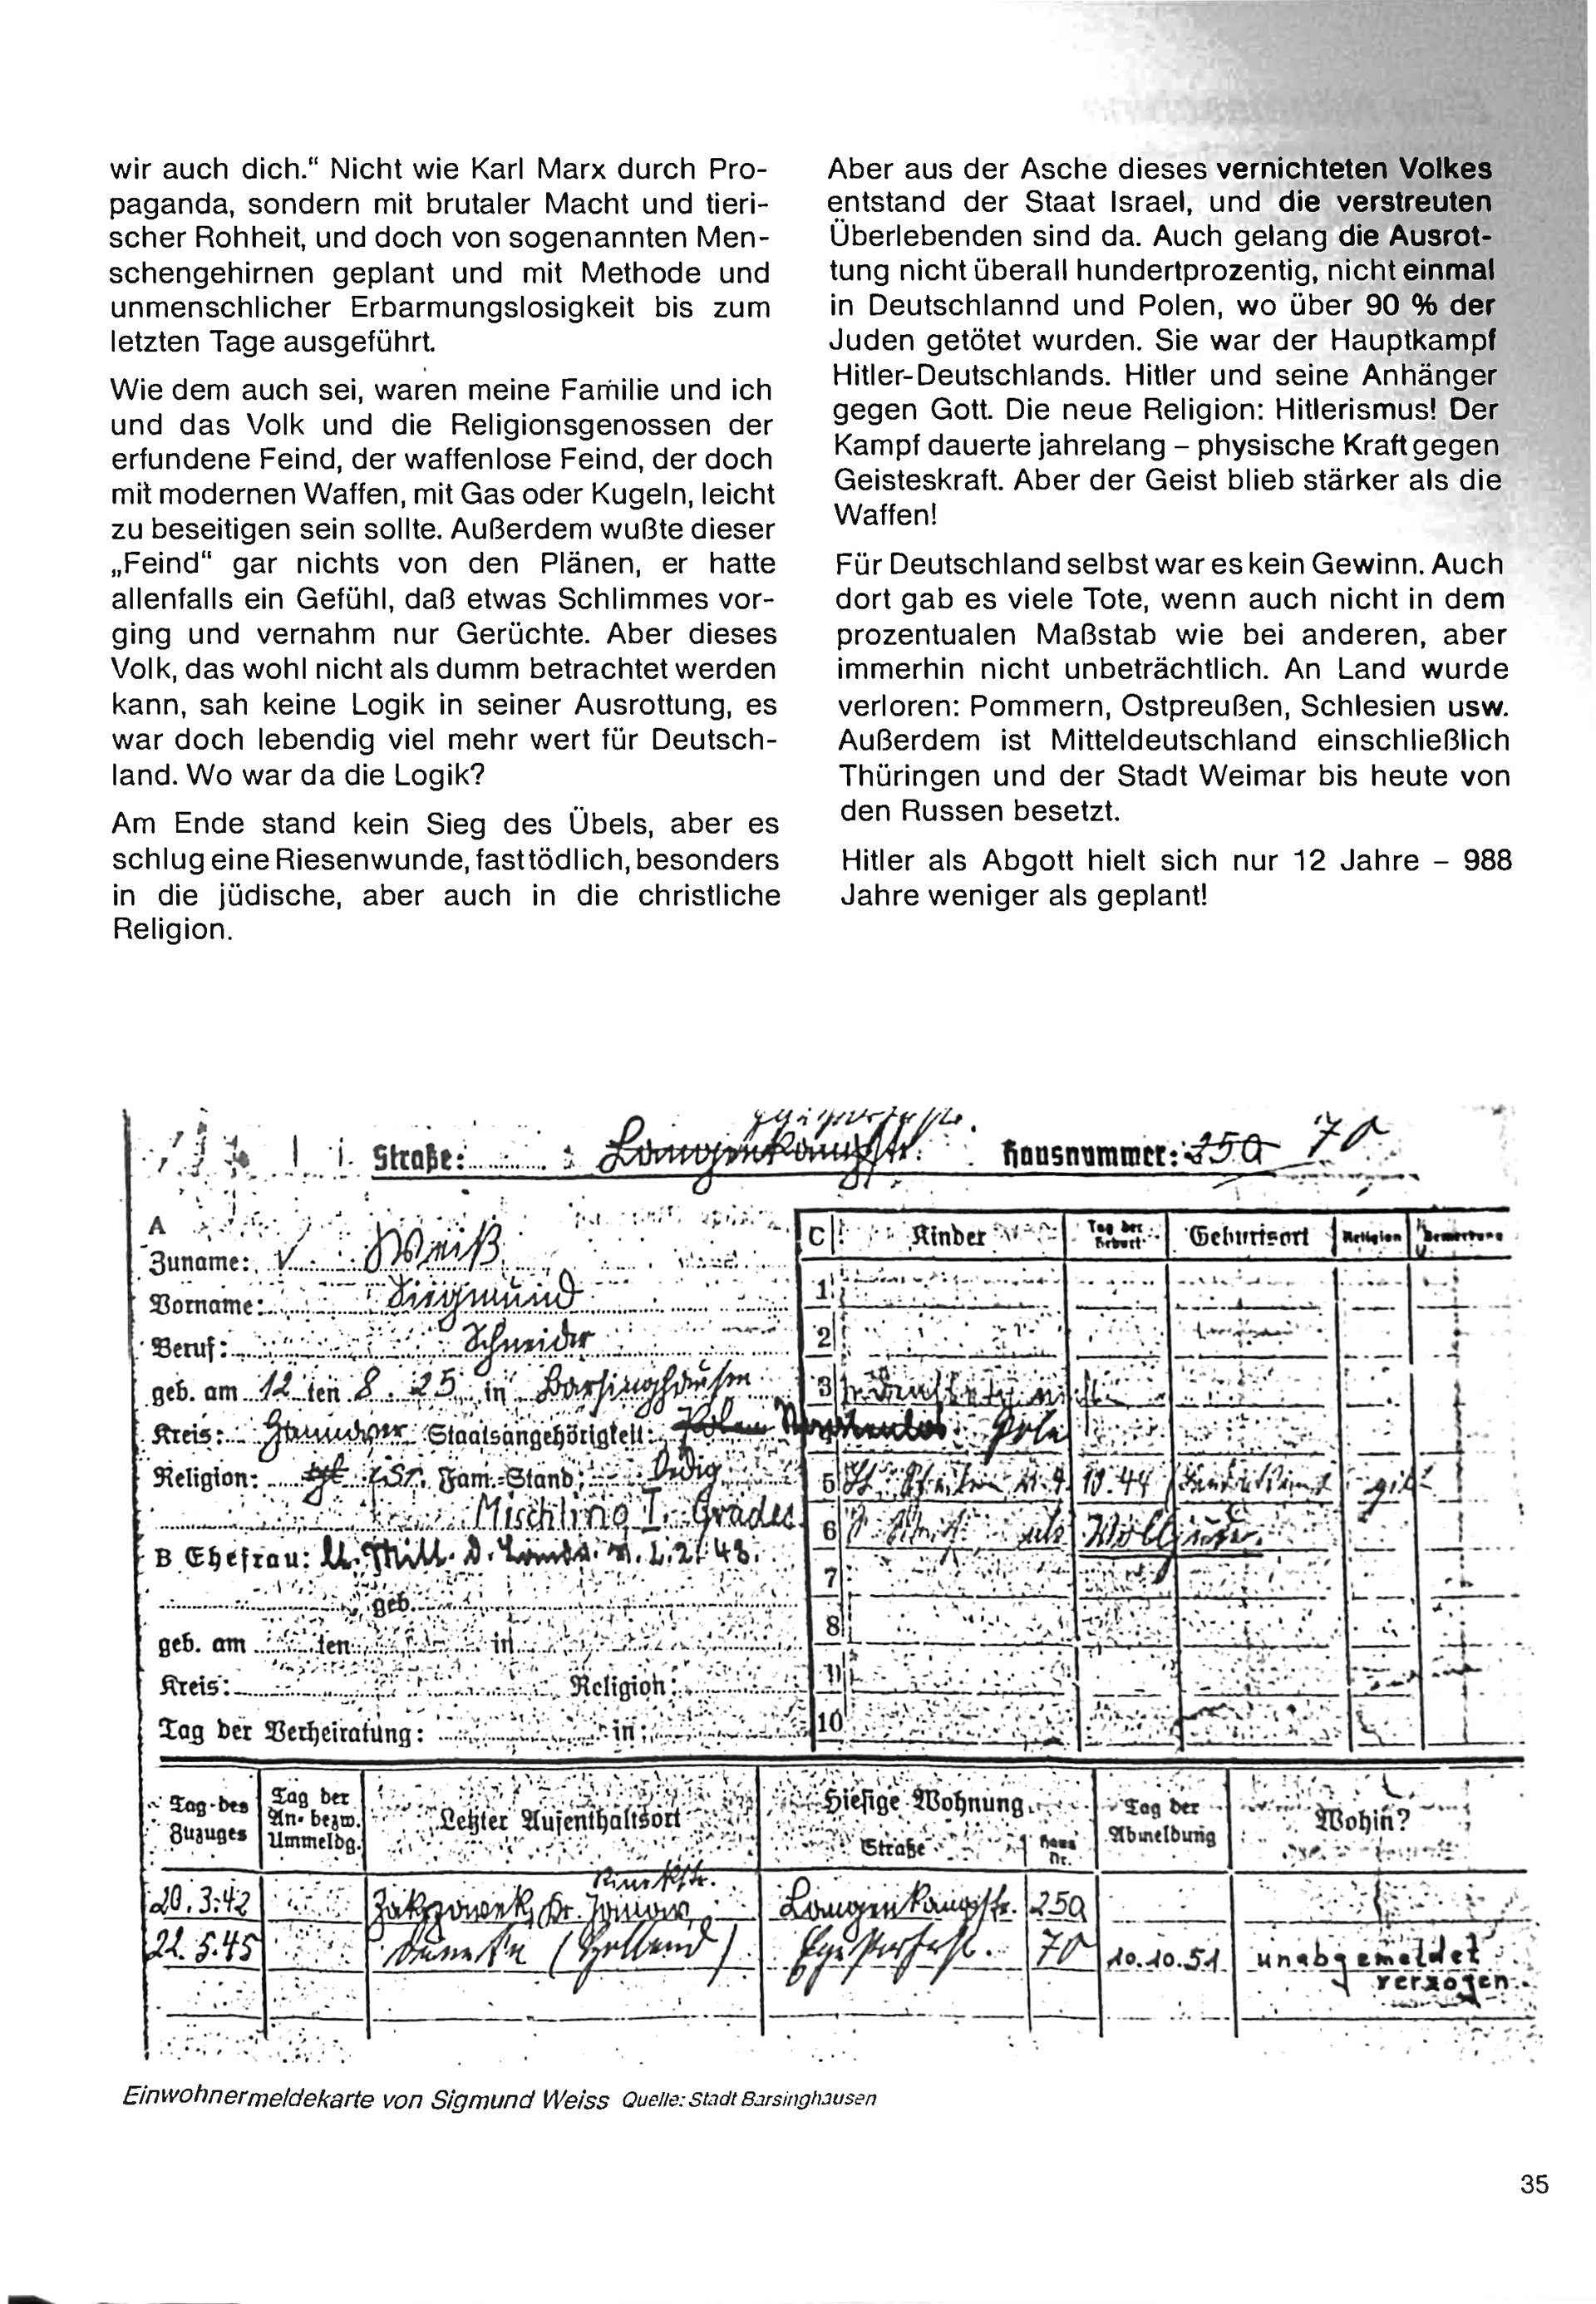 wir auch dich.“ Nicht wie Karl Marx durch Pro-
paganda, sondern mit brutaler Macht und tieri-
scher Rohheit, und doch von sogenannten Men-
schengehirnen geplant und mit Methode und
unmenschlicher Erbarmungslosigkeit bis zum
letzten Tage ausgeführt.
Wie dem auch sei, waren meine Familie und ich
und das Volk und die Religionsgenossen der
erfundene Feind, der waffenlose Feind, der doch
mit modernen Waffen, mit Gas oder Kugeln, leicht
zu beseitigen sein sollte. Außerdem wußte dieser
„Feind“ gar nichts von den Plänen, er hatte
allenfalls ein Gefühl, daß etwas Schlimmes vor-
ging und vernahm nur Gerüchte. Aber dieses
Volk, das wohl nicht als dumm betrachtet werden
kann, sah keine Logik in seiner Ausrottung, es
war doch lebendig viel mehr wert für Deutsch-
land. Wo war da die Logik?
Am Ende stand kein Sieg des Übels, aber es
schlug eine Riesenwunde, fast tödlich, besonders
in die jüdische, aber auch in die christliche
Religion.
Aber aus der Asche dieses vernichteten Volkes
entstand der Staat Israel, und die verstreuten
Überlebenden sind da. Auch gelang die Ausrot-
tung nicht überall hundertprozentig, nicht einmal
in Deutschlannd und Polen, wo über 90 % der
Juden getötet wurden. Sie war der Hauptkampf
Hitler-Deutschlands. Hitler und seine Anhänger
gegen Gott. Die neue Religion: Hitlerismus! Der
Kampf dauerte jahrelang – physische Kraft gegen
Geisteskraft. Aber der Geist blieb stärker als die
Waffen!
Für Deutschland selbst war es kein Gewinn. Auch
dort gab es viele Tote, wenn auch nicht in dem
prozentualen Maßstab wie bei anderen, aber
immerhin nicht unbeträchtlich. An Land wurde
verloren: Pommern, Ostpreußen, Schlesien usw.
Außerdem ist Mitteldeutschland einschließlich
Thüringen und der Stadt Weimar bis heute von
den Russen besetzt.
Hitler als Abgott hielt sich nur 12 Jahre – 988
Jahre weniger als geplant!
Straße: Langenkampstr. Hausnummer: 25a 70
A
Zuname: Weiß
Vorname: Siegmund
Beruf: Schneider
geb. am 12 ten 8. 25 in Barsinghausen
Kreis: Hannover Staatsangehörigkeit: Polen Pole
Religion: isr. Fam.-Stand: ledig
Mischling I. Grades
B Ehefrau:
geb.
geb. am ten in
Kreis: Religion:
Tag der Verheiratung: in:
C Kinder Tag der Geburt Geburtsort Religion Bemerkung
1
2
3
5
6 als Volljude.
7
8
10
Tag des Zuzuges Tag der An- bezw. Ummeldg. Letzter Aufenthaltsort Hiesige Wohnung Straße Haus Nr. Tag der Abmeldung Wohin?
20.3.42 Langenkampstr. 25a
22.5.45 (Holland) 70 10.10.51 unabgemeldet
verzogen
Einwohnermeldekarte von Sigmund Weiss Quelle: Stadt Barsinghausen
35